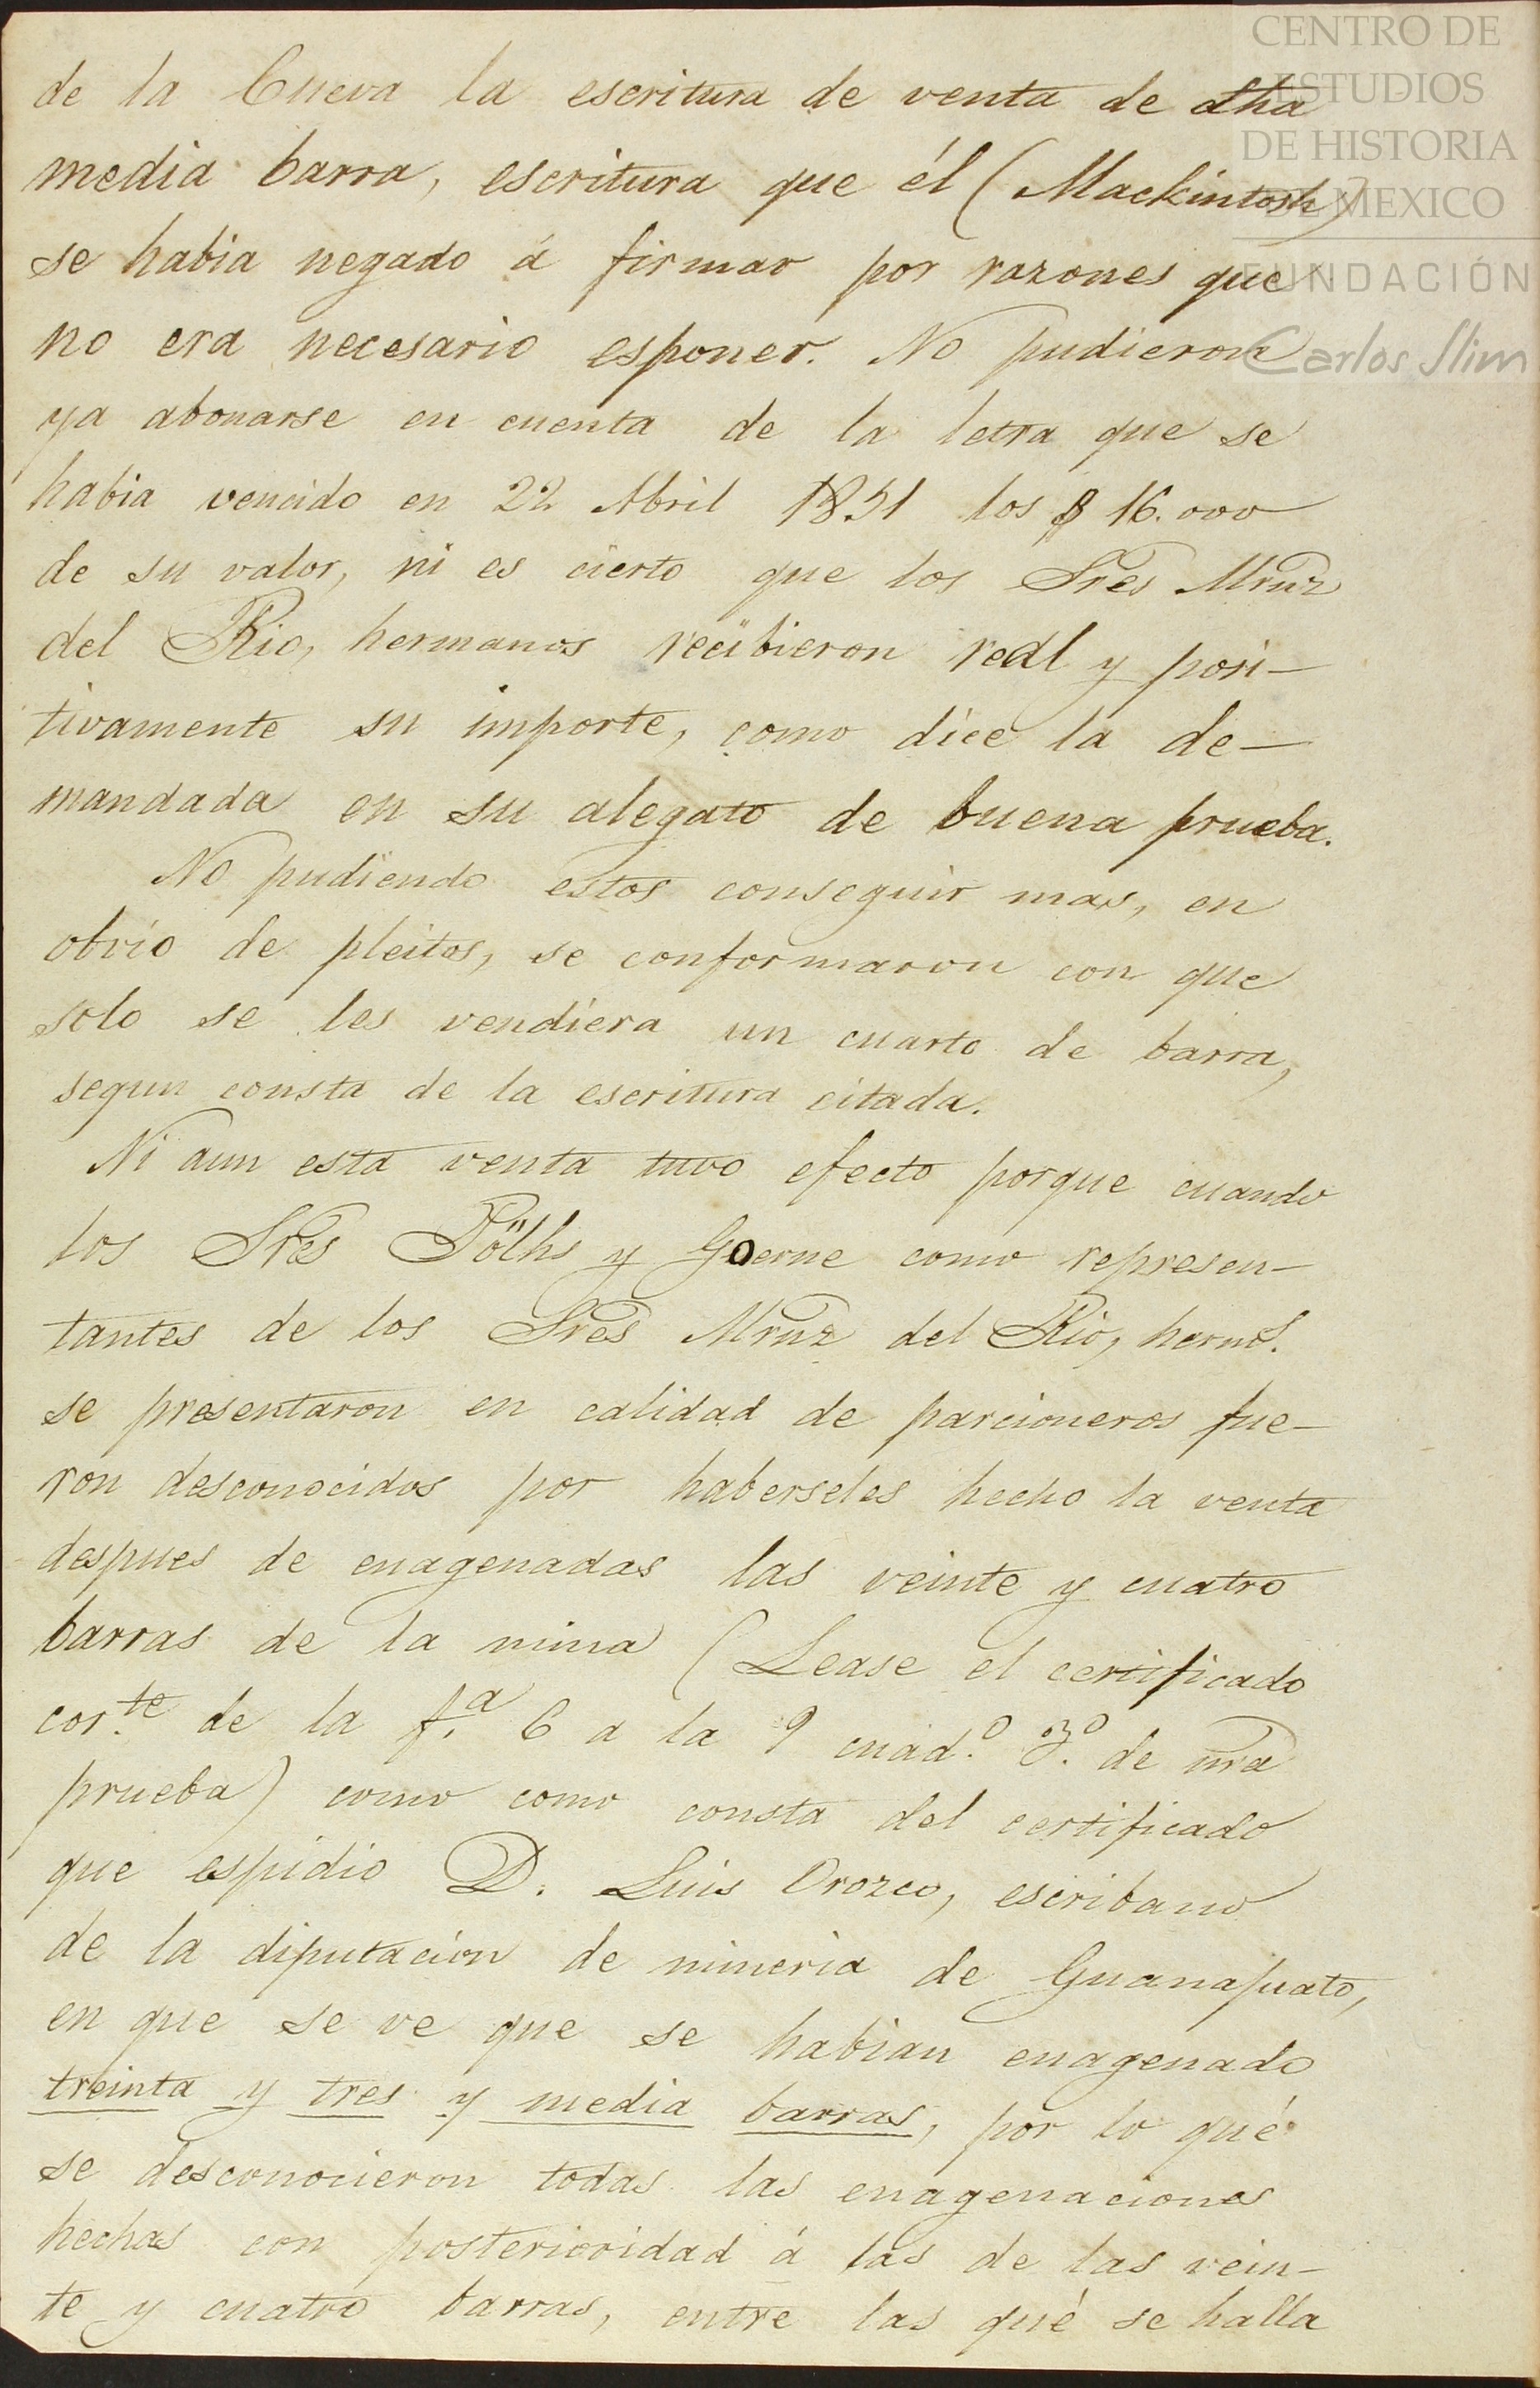 CENTRO DE
ESTUDIOS
DE HISTORIA
DE MEXICO
FUNDACIÓN
Carlos Slim
de la Cueva la escritura de venta de dha
media barra, escritura que él (Mackintosh)
se habia negado á firmar por razones que
no era necesario esponer. No pudieron
ya abonarse en cuenta de la letra que se
habia vencido en 22 Abril 1851 los $ 16.000
de su valor, ni es cierto que los Sres Mrnz
del Rio, hermanos recibieron real y posi-
tivamente su importe, como dice la de-
mandada en su alegato de buena prueba.
No pudiendo estos conseguir mas, en
obvio de pleitos, se conformaron con que
solo se les vendiera un cuarto de barra,
segun consta de la escritura citada.
Ni aun esta venta tuvo efecto porque cuando
los Sres Pölhs y Goerne como represen-
tantes de los Sres Mrnz del Rio, herms.
se presentaron en calidad de parcioneros fue-
ron desconocidos por haberseles hecho la venta
despues de enagenadas las veinte y cuatro
barras de la mina (Lease el certificado
cor.te de la f.a 6 a la 9 cuad.o 3.o de nra
prueba) como como consta del certificado
que espidio D. Luis Orozco, escribano
de la diputacion de mineria de Guanajuato,
en que se ve que se habian enagenado
treinta y tres y media barras, por lo qué
se desconocieron todas las enagenaciones
hechas con posterioridad á las de las vein-
te y cuatro barras, entre las qué se halla